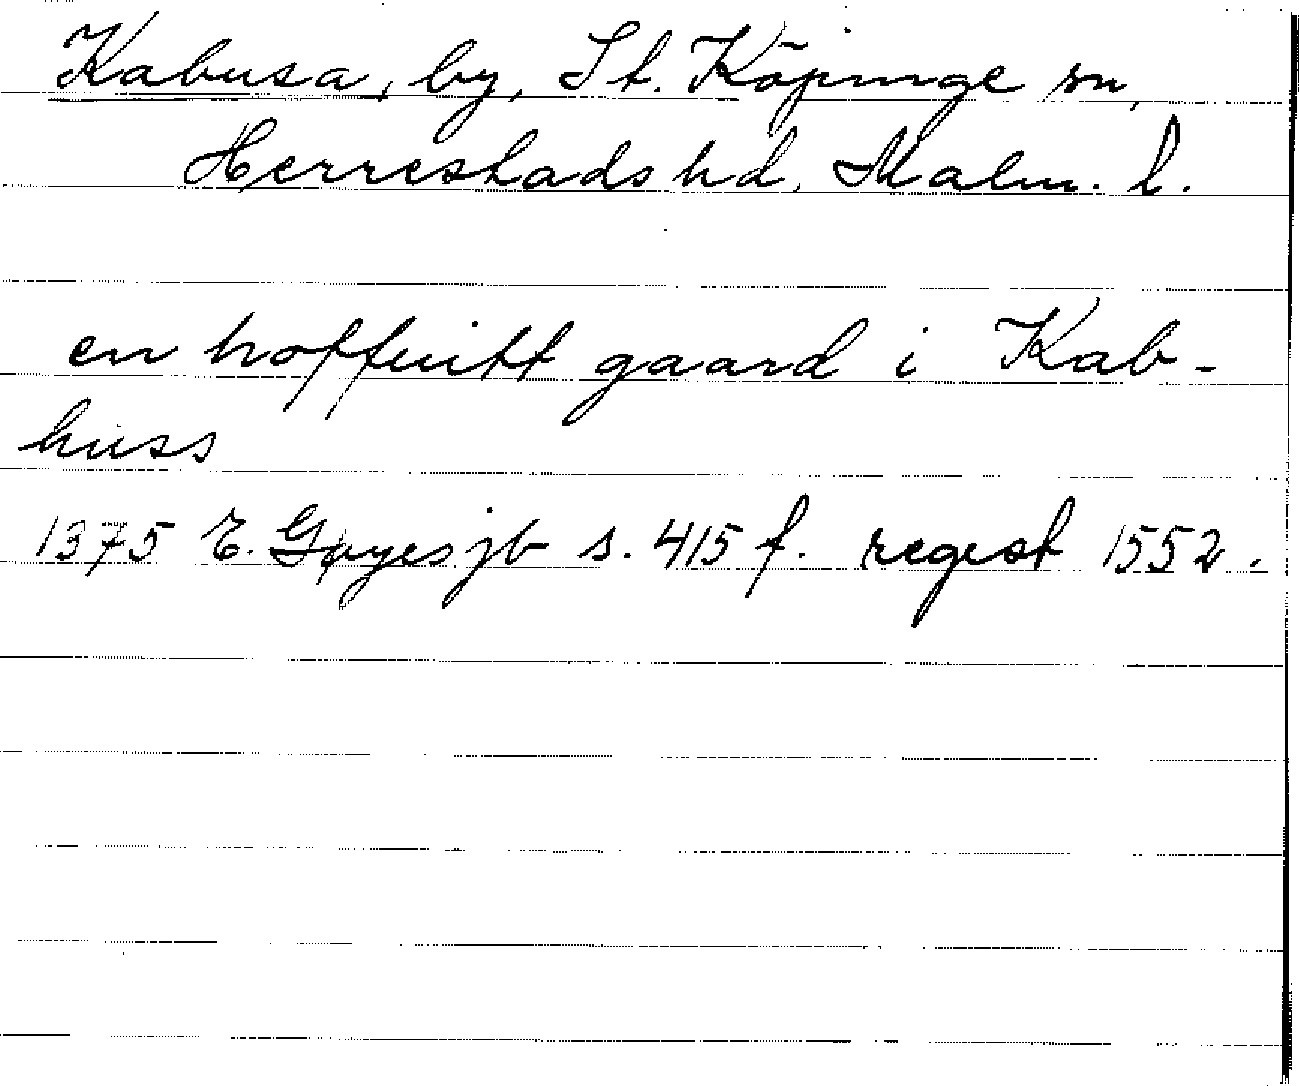 Kabusa, by, St. Köpinge sn,
Herrestads hd. Malm. l.
en hoffuitt gaard i Kab-
huss
1375 E. Gøyes jb s. 415 f. regest 1552.